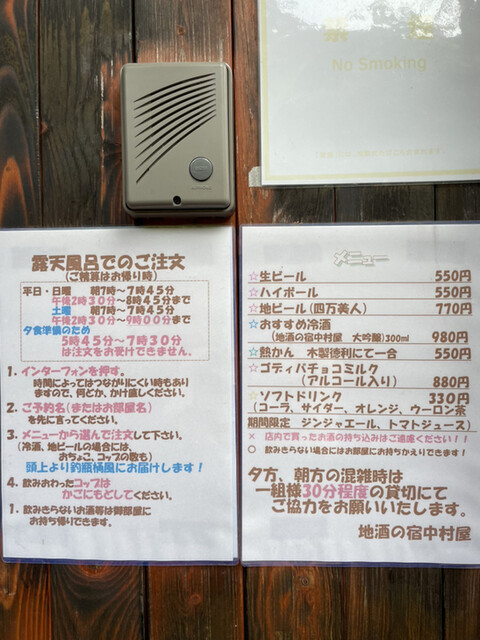 No Smoking
露天風呂でのご注文
(ご精算はお帰り時)
平日・日曜 朝7時～7時45分
午後2時30分～8時45分まで
土曜 朝7時～7時45分
午後2時30分～9時00分まで
夕食準備のため
5時45分～7時30分
は注文をお受けできません。
1. インターフォンを押す。
時間によってはつながりにくい時もあり
ますので、何どか、かけ直しください。
2. ご予約名(またはお部屋名)
を先に言ってください。
3. メニューから選んで注文して下さい。
(冷酒、地ビールの場合には、
おちょこ、コップの数も)
頭上より釣瓶桶風にお届けします!
4. 飲みおわったコップは
かごにもどしてください。
1. 飲みきらないお酒等は御部屋に
お持ち帰りできます。
メニュー
☆生ビール 550円
☆ハイボール 550円
☆地ビール(四万美人) 770円
☆おすすめ冷酒
(地酒の宿中村屋 大吟醸)300ml 980円
☆熱かん 木製徳利にて一合 550円
☆ゴディバチョコミルク
(アルコール入り) 880円
☆ソフトドリンク 330円
(コーラ、サイダー、オレンジ、ウーロン茶
期間限定 ジンジャエール、トマトジュース)
× 店内で買ったお酒の持ち込みはご遠慮ください!!
○ 飲みきらない場合にはお部屋にお持ちかえりできます!
夕方、朝方の混雑時は
一組様30分程度の貸切にて
ご協力をお願いいたします。
地酒の宿中村屋